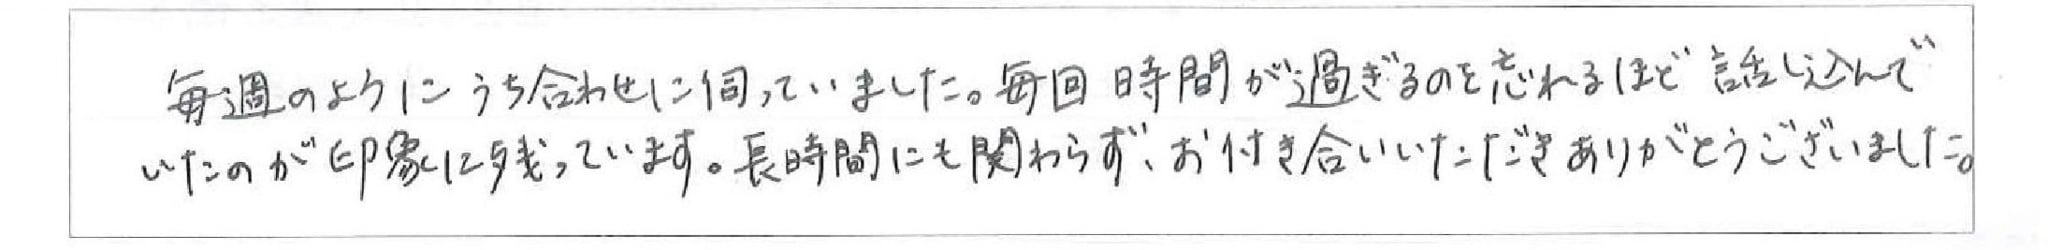 毎週のようにうち合わせに伺っていました。毎回時間が過ぎるのを忘れるほど話し込んで
いたのが印象に残っています。長時間にも関わらず、お付き合いいただきありがとうございました。